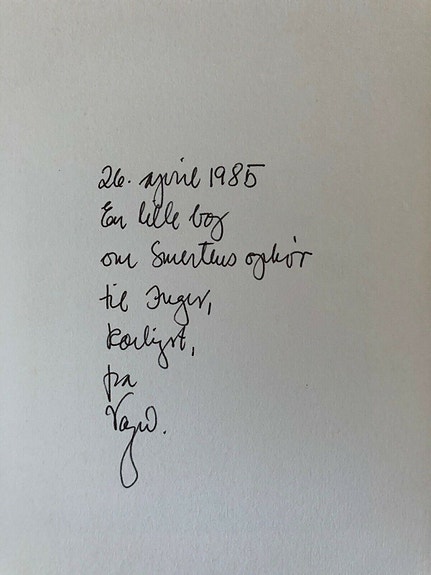 26. april 1985
En lille bog
om Smertens ophør
til Inger,
kærligst,
fra
Vagn.